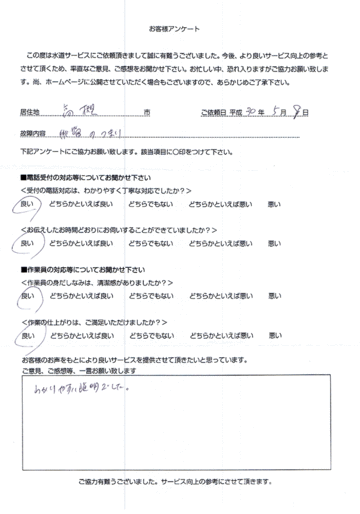 お客様アンケート
この度は水道サービスにご依頼頂きまして誠に有難うございました。今後、より良いサービス向上の参考と
させて頂くため、率直なご意見、ご感想をお聞かせ下さい。お忙しい中、恐れ入りますがご協力お願い致しま
す。尚、ホームページに公開させていただく場合もございますので、あらかじめご了承下さい。
居住地 高槻 市 ご依頼日 平成 30 年 5 月 日
故障内容 のつまり
下記アンケートにご協力お願い致します。該当項目に〇印をつけて下さい。
■電話受付の対応等についてお聞かせ下さい
<受付の電話対応は、わかりやすく丁寧な対応でしたか？>
良い どちらかといえば良い どちらでもない どちらかといえば悪い 悪い
<お伝えしたお時間どおりにお伺いすることができていましたか？>
良い どちらかといえば良い どちらでもない どちらかといえば悪い 悪い
■作業員の対応等についてお聞かせ下さい
<作業員の身だしなみは、清潔感がありましたか？>
良い どちらかといえば良い どちらでもない どちらかといえば悪い 悪い
<作業の仕上がりは、ご満足いただけましたか？>
良い どちらかといえば良い どちらでもない どちらかといえば悪い 悪い
お客様のお声をもとにより良いサービスを提供させて頂きたいと思っています。
ご意見、ご感想等、一言お願い致します
わかりやすい説明でした。
ご協力有難うございました。サービス向上の参考にさせて頂きます。